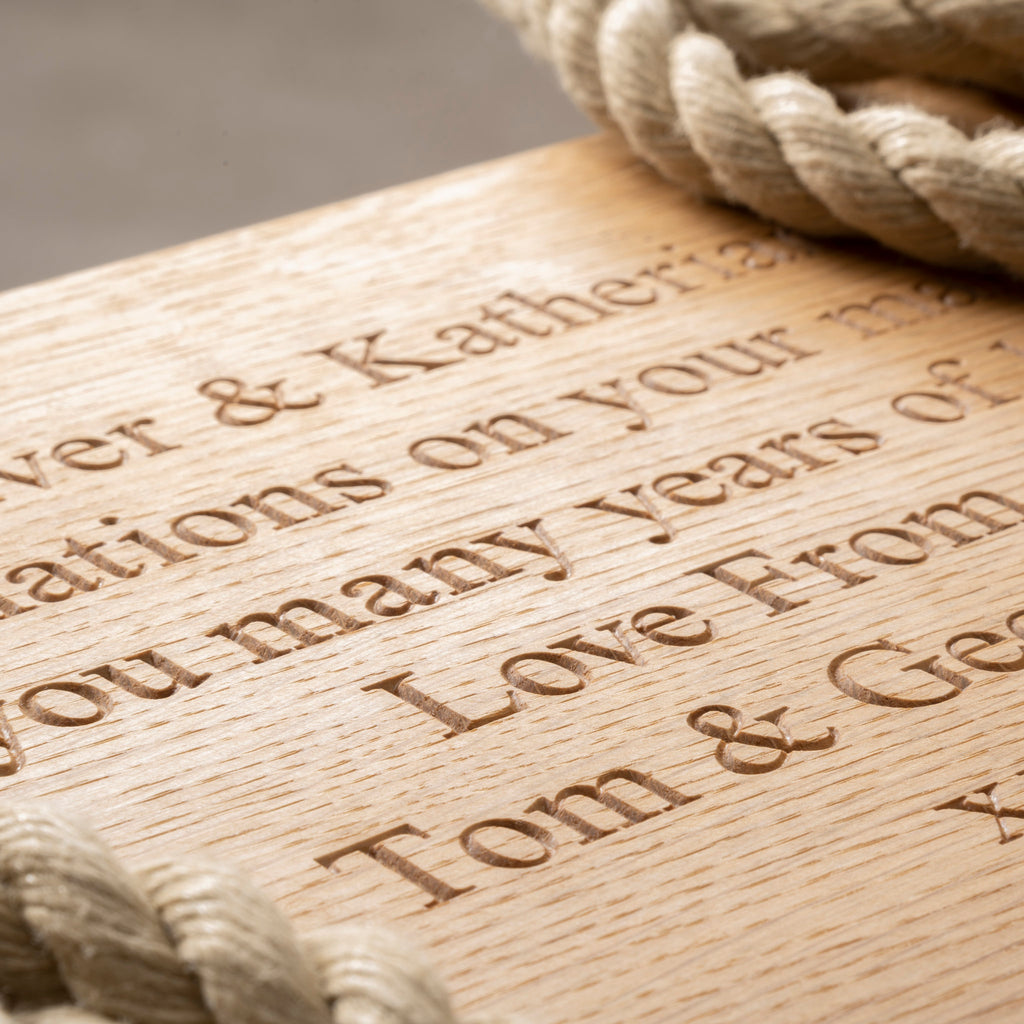 ver & Katheria
ations on your ma
you many years of
Love From
Tom & Geo
x